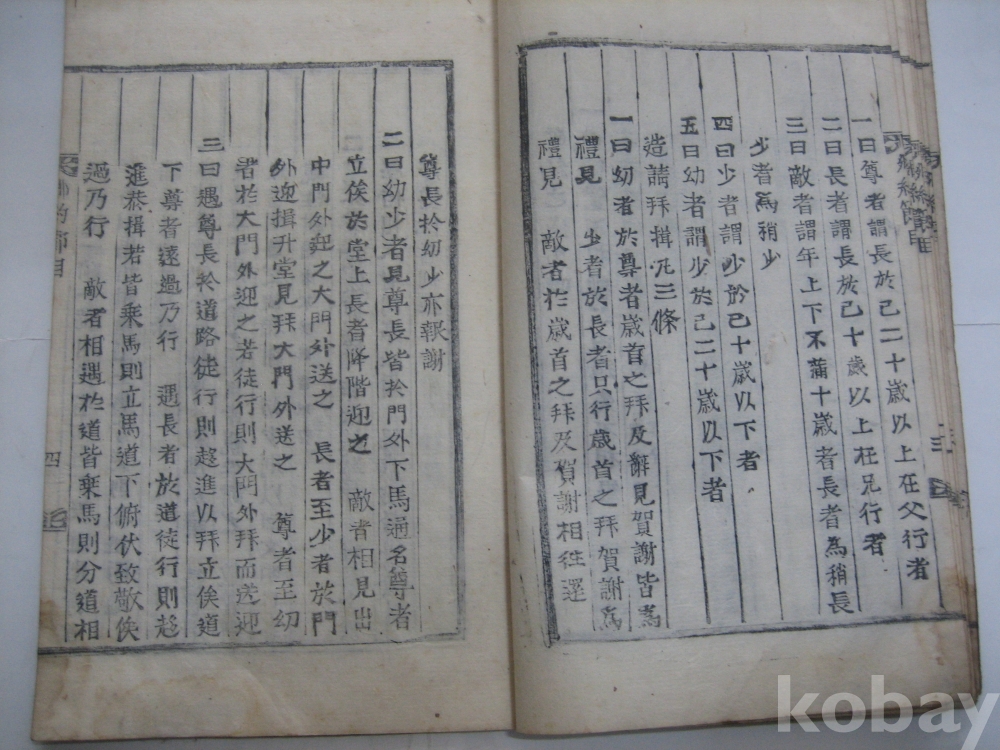 一曰尊者謂長於己二十歲以上在父行者
二曰長者謂長於己十歲以上在兄行者
三曰敵者謂年上下不滿十歲者長者為稍長
少者為稍少
四曰少者謂少於己十歲以下者
五曰幼者謂少於己二十歲以下者
造請拜揖凡三條
一曰幼者於尊者歲首之拜及辭見賀謝皆為
禮見 少者於長者只行歲首之拜賀謝為
禮見 敵者於歲首之拜及賀謝相往還
尊長於幼少亦報謝
二曰幼少者見尊長皆於門外下馬通名尊者
立俟於堂上長者降階迎之 敵者相見出
中門外迎之大門外送之 長者至少者於門
外迎揖升堂見拜大門外送之 尊者至幼
者於大門外迎之若徒行則大門外拜而迎
三曰遇尊長於道路徒行則趨進以拜立俟道
下尊者遠過乃行 遇長者於道徒行則趨
進恭揖若皆乘馬則立馬道下俯伏致敬俟
過乃行 敵者相遇於道皆乘馬則分道相
約節目
四
kobay